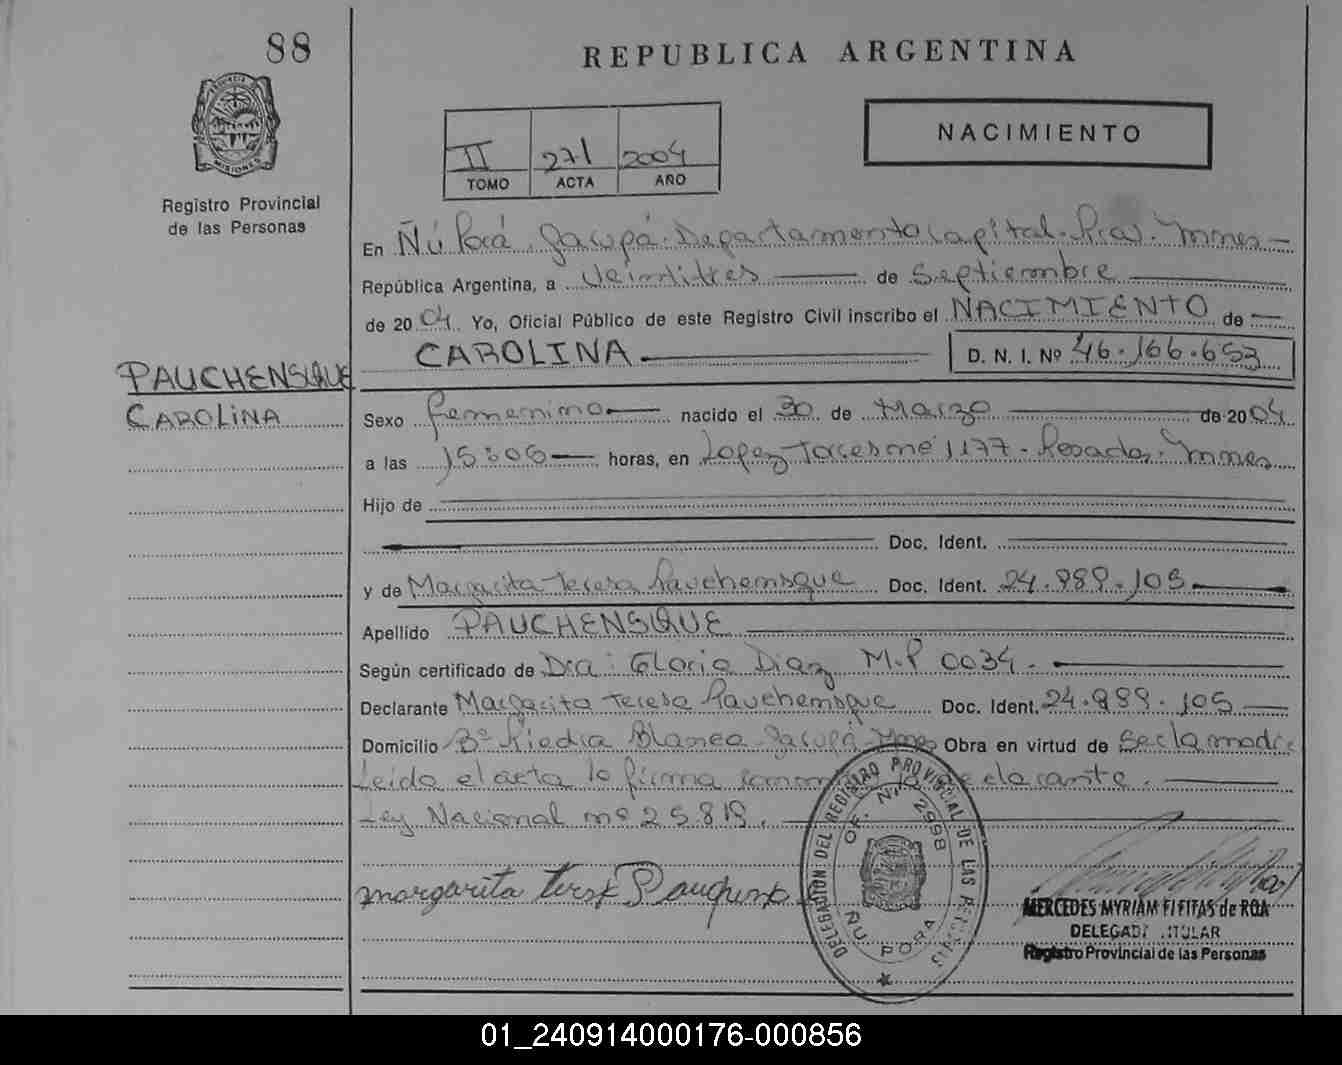 88
REPUBLICA ARGENTINA
PROVINCIA
MISIONES
Registro Provincial
de las Personas
II 271 2004
TOMO ACTA AÑO
NACIMIENTO
En Ñú Porá, Garupá. Departamento Capital. Pcia. Mnes
República Argentina, a Veintitres de Septiembre
de 2004. Yo, Oficial Público de este Registro Civil inscribo el NACIMIENTO de
CAROLINA D. N. I. Nº 46.166.653
PAUCHENSQUE
CAROLINA
Sexo femenino nacido el 30 de Marzo de 2004
a las 15:06 horas, en Lopez Torres nº 1177 - Posadas. Mnes
Hijo de
Doc. Ident.
y de Margarita Teresa Pauchensque Doc. Ident. 24.989.105
Apellido PAUCHENSQUE
Según certificado de Dra: Gloria Diaz M.P 0034.
Declarante Margarita Teresa Pauchensque Doc. Ident. 24.989.105
Domicilio Bº Piedra Blanca Garupá Mnes Obra en virtud de Ser la madre
Leida el acta la firma
Ley Nacional nº 25.819.
margarita
DELEGACION DEL REGISTRO PROVINCIAL DE LAS PERSONAS
OF. Nº 2998
ÑU PORA
MERCEDES MYRIAM de ROA
DELEGADA TITULAR
Registro Provincial de las Personas
01_240914000176-000856